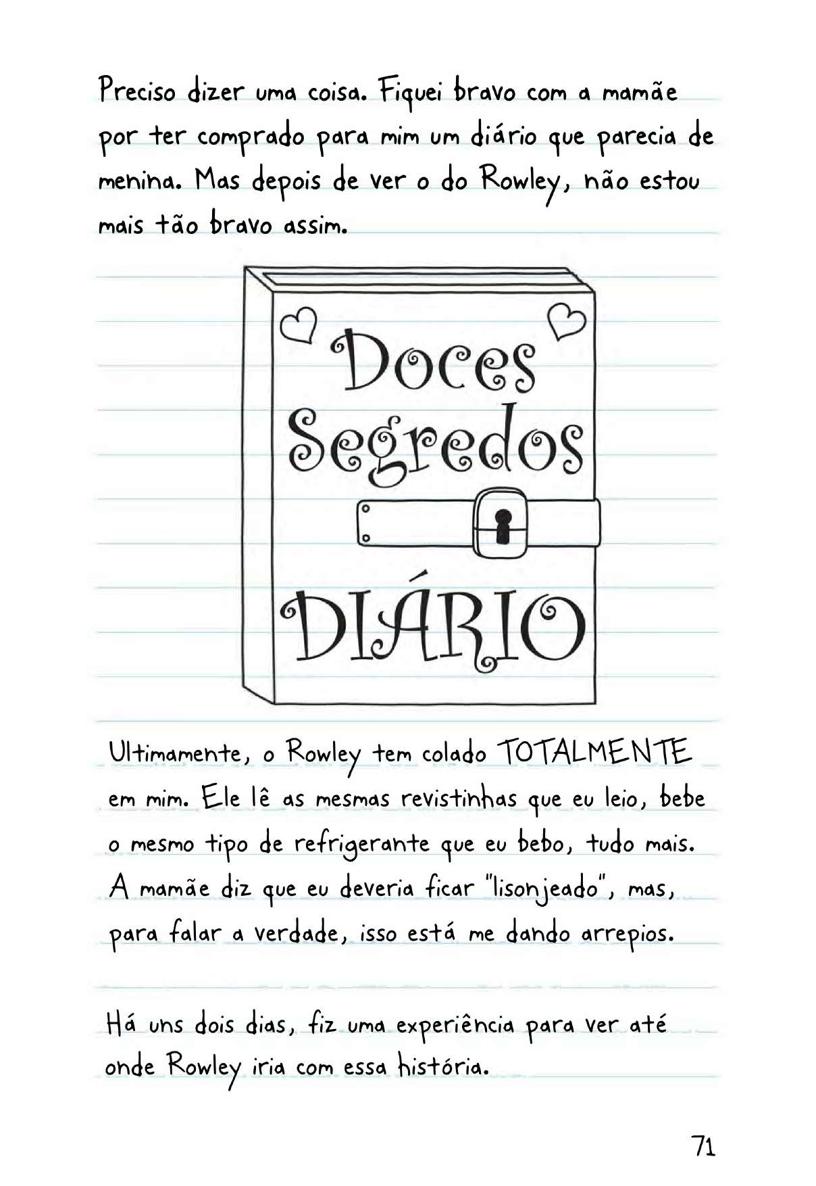 Preciso dizer uma coisa. Fiquei bravo com a mamãe
por ter comprado para mim um diário que parecia de
menina. Mas depois de ver o do Rowley, não estou
mais tão bravo assim.
Doces
Segredos
DIÁRIO
Ultimamente, o Rowley tem colado TOTALMENTE
em mim. Ele lê as mesmas revistinhas que eu leio, bebe
o mesmo tipo de refrigerante que eu bebo, tudo mais.
A mamãe diz que eu deveria ficar "lisonjeado", mas,
para falar a verdade, isso está me dando arrepios.
Há uns dois dias, fiz uma experiência para ver até
onde Rowley iria com essa história.
71